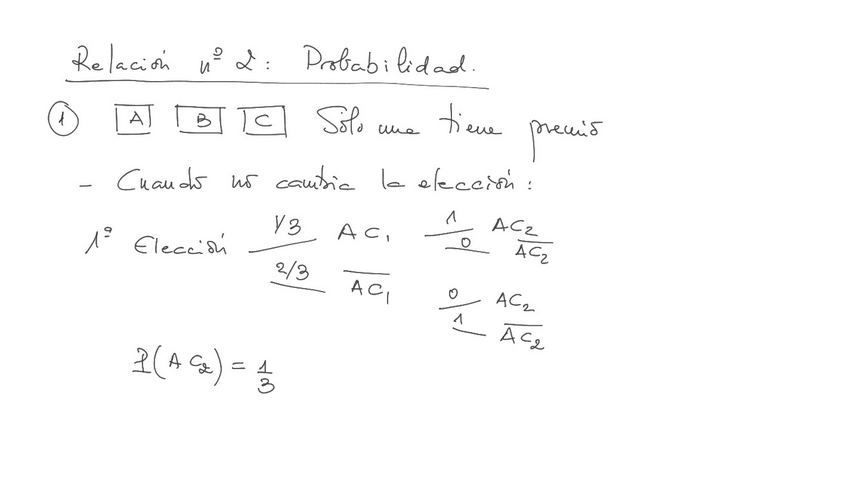 Relación nº 2: Probabilidad.
1 A B C Sólo una tiene premio
- Cuando no cambia la elección:
1ª Elección 1/3 AC1 1 AC2
0 AC2
2/3 AC1
0 AC2
1 AC2
P(AC2) = 1/3